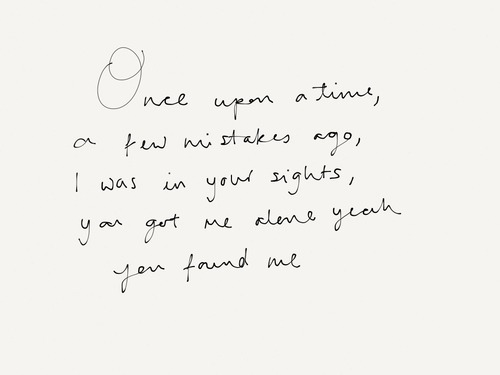 Once upon a time,
a few mistakes ago,
I was in your sights,
you got me alone yeah
you found me